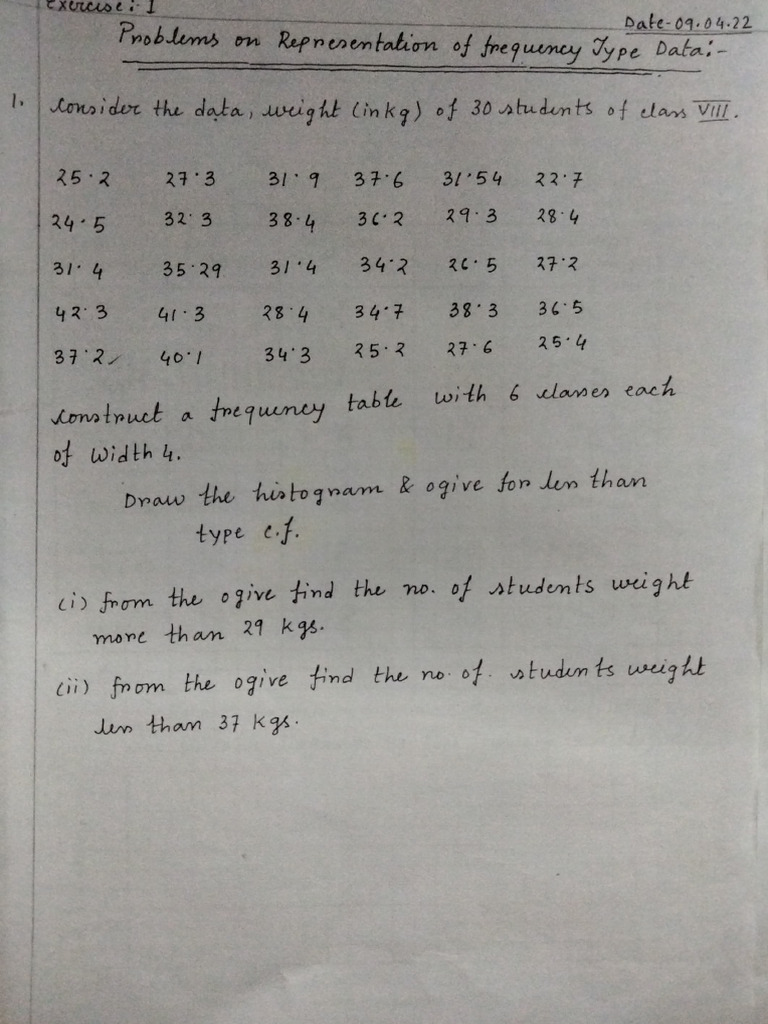 Exercise:- I
Date-09.04.22
Problems on Representation of frequency Type Data:-
1. Consider the data, weight (in kg) of 30 students of class VIII.
25.2 27.3 31.9 37.6 31.54 22.7
24.5 32.3 38.4 36.2 29.3 28.4
31.4 35.29 31.4 34.2 26.5 27.2
42.3 41.3 28.4 34.7 38.3 36.5
37.2 40.1 34.3 25.2 27.6 25.4
Construct a frequency table with 6 classes each
of width 4.
Draw the histogram & ogive for less than
type c.f.
(i) from the ogive find the no. of students weight
more than 29 kgs.
(ii) from the ogive find the no. of. students weight
less than 37 kgs.